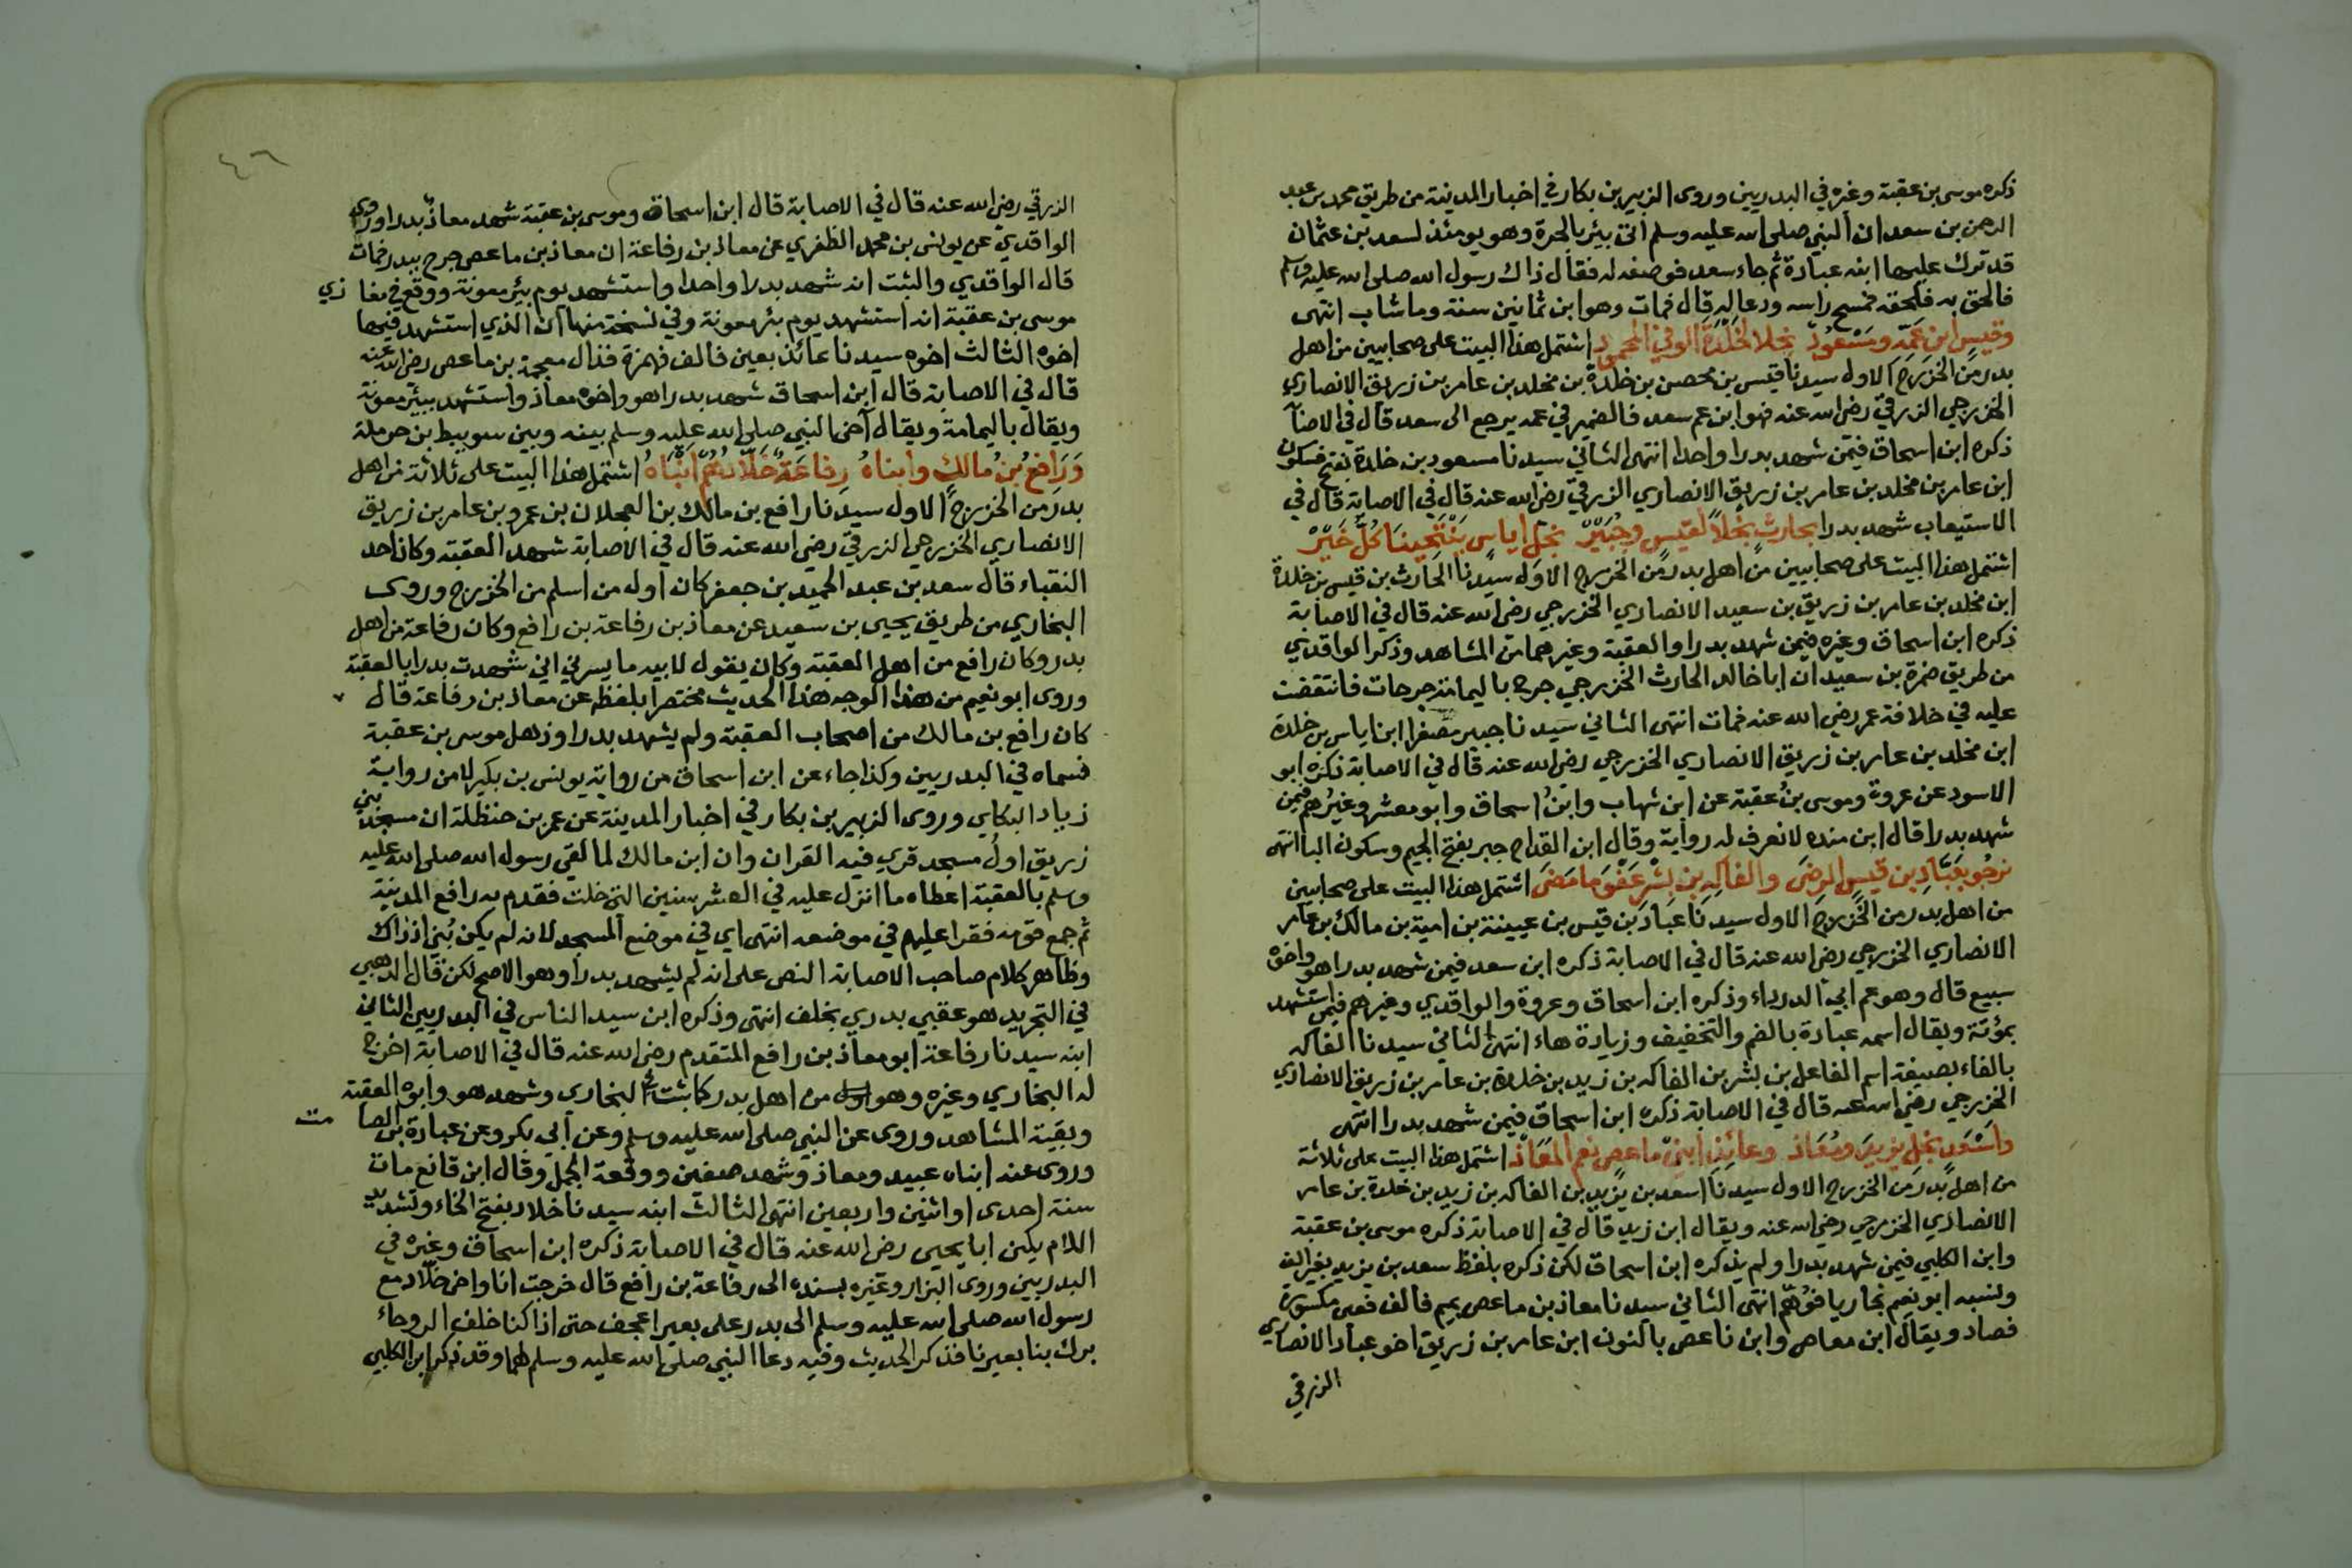 ذكره موسى بن عقبة وغيره في البدريين وروى الزبير بن بكار في اخبار المدينة من طريق محمد بن عبد
الرحمن بن سعد ان النبي صلى الله عليه وسلم اتى بئر بالحرة وهو يومئذ لسعد بن عثمان
قد ترك عليها ابنه عبادة ثم جاء سعد فوصفه له فقال ذاك رسول الله صلى الله عليه وسلم
فالحق به فلحقه فمسح راسه ودعا له قال فمات وهو ابن ثمانين سنة وما شاب انتهى
وقيس ابن عمه ومسعود نجلا لخلدة الوفي المحمود اشتمل هذا البيت على صحابيين من اهل
بدر من الخزرج الاول سيدنا قيس بن محصن بن خلدة بن مخلد بن عامر بن زريق الانصاري
الخزرجي الزرقي رضي الله عنه فهو ابن عم سعد فالضمير في عمه يرجع الى سعد قال في الاصا
ذكره ابن اسحاق فيمن شهد بدرا واحدا انتهى الثاني سيدنا مسعود بن خلدة بفتح فسكون
ابن عامر بن مخلد بن عامر بن زريق الانصاري الزرقي رضي الله عنه قال في الاصابة قال في
الاستيعاب شهد بدرا بحارث نجلا لقيس وجبير نجل اياس ينتحينا كل خير
اشتمل هذا البيت على صحابيين من اهل بدر من الخزرج الاول سيدنا الحارث بن قيس بن خلدة
ابن مخلد بن عامر بن زريق بن سعيد الانصاري الخزرجي رضي الله عنه قال في الاصابة
ذكره ابن اسحاق وغيره فيمن شهد بدرا والعقبة وغيرهما من المشاهد وذكر الواقدي
من طريق ضمرة بن سعيد ان ابا خالد الحارث الخزرجي جرح باليمامة جرحات فانتقضت
عليه في خلافة عمر رضي الله عنه فمات انتهى الثاني سيدنا جبير مصغرا ابن اياس بن خلدة
ابن مخلد بن عامر بن زريق الانصاري الخزرجي رضي الله عنه قال في الاصابة ذكره ابو
الاسود عن عروة وموسى بن عقبة عن ابن شهاب وابن اسحاق وابو معشر وغيرهم فيمن
شهد بدرا قال ابن منده لا نعرف له رواية وقال ابن القداح جبر بفتح الجيم وسكون البا انتهى
نرجو بعباد بن قيس الرضى والفاكه بن بشر عفو ما مضى اشتمل هذا البيت على صحابيين
من اهل بدر من الخزرج الاول سيدنا عباد بن قيس بن عيينة بن امية بن مالك بن عامر
الانصاري الخزرجي رضي الله عنه قال في الاصابة ذكره ابن سعد فيمن شهد بدرا هو واخوه
سبيع قال وهو عم ابي الدرداء وذكره ابن اسحاق وعروة والواقدي وغيرهم فيمن استشهد
بمؤتة ويقال اسمه عبادة بالضم والتخفيف وزيادة هاء انتهى الثاني سيدنا الفاكه
بالفاء بصيغة اسم الفاعل بن بشر بن الفاكه بن زيد بن خلدة بن عامر بن زريق الانصاري
الخزرجي رضي الله عنه قال في الاصابة ذكره ابن اسحاق فيمن شهد بدرا انتهى
واسعد نجل يزيد ومعاذ وعائذ ابني ماعص نعم المعاذ اشتمل هذا البيت على ثلاثة
من اهل بدر من الخزرج الاول سيدنا اسعد بن يزيد بن الفاكه بن زيد بن خلدة بن عامر
الانصاري الخزرجي رضي الله عنه ويقال ابن زيد قال في الاصابة ذكره موسى بن عقبة
وابن الكلبي فيمن شهد بدرا ولم يذكره ابن اسحاق لكن ذكره بلفظ سعد بن يزيد بغير الف
ونسبه ابو نعيم نجاريا فوهم انتهى الثاني سيدنا معاذ بن ماعص بميم فالف فعين مكسورة
فصاد ويقال ابن معاص وابن ناعص بالنون ابن عامر بن زريق اخو عباد الانصاري
الزرقي
٤٦
الزرقي رضي الله عنه قال في الاصابة قال ابن اسحاق وموسى بن عقبة شهد معاذ بدرا وروى
الواقدي عن يونس بن محمد الظفري عن معاذ بن رفاعة ان معاذ بن ماعص جرح ببدر فمات
قال الواقدي والثبت انه شهد بدرا واحدا واستشهد يوم بئر معونة ووقع في مغازي
موسى بن عقبة انه استشهد يوم بئر معونة وفي نسخة منها ان الذي استشهد فيها
اخوه الثالث اخوه سيدنا عائذ بعين فالف فهمزة فذال معجمة بن ماعص رضي الله عنه
قال في الاصابة قال ابن اسحاق شهد بدرا هو واخوه معاذ واستشهد ببئر معونة
ويقال باليمامة ويقال آخى النبي صلى الله عليه وسلم بينه وبين سويبط بن حرملة
ورافع بن مالك وابناه رفاعة خلادهم انباه اشتمل هذا البيت على ثلاثة من اهل
بدر من الخزرج الاول سيدنا رافع بن مالك بن العجلان بن عمرو بن عامر بن زريق
الانصاري الخزرجي الزرقي رضي الله عنه قال في الاصابة شهد العقبة وكان احد
النقباء قال سعد بن عبد الحميد بن جعفر كان اول من اسلم من الخزرج وروى
البخاري من طريق يحيى بن سعيد عن معاذ بن رفاعة بن رافع وكان رفاعة من اهل
بدر وكان رافع من اهل العقبة وكان يقول لابيه ما يسرني اني شهدت بدرا بالعقبة
وروى ابو نعيم من هذا الوجه هذا الحديث مختصرا بلفظ عن معاذ بن رفاعة قال
كان رافع بن مالك من اصحاب العقبة ولم يشهد بدرا وذهل موسى بن عقبة
فسماه في البدريين وكذا جاء عن ابن اسحاق من رواية يونس بن بكير لا من رواية
زياد البكاي وروى الزبير بن بكار في اخبار المدينة عن عمر بن حنظلة ان مسجد بني
زريق اول مسجد قري فيه القران وان ابن مالك لما لقي رسول الله صلى الله عليه
وسلم بالعقبة اعطاه ما انزل عليه في العشر سنين التي خلت فقدم به رافع المدينة
ثم جمع قومه فقرا عليهم في موضعه انتهى اي في موضع المسجد لانه لم يكن بني اذ ذاك
وظاهر كلام صاحب الاصابة النص على انه لم يشهد بدرا وهو الاصح لكن قال الذهبي
في التجريد هو عقبي بدري بخلف انتهى وذكره ابن سيد الناس في البدريين الثاني
ابنه سيدنا رفاعة ابو معاذ بن رافع المتقدم رضي الله عنه قال في الاصابة اخرج
له البخاري وغيره وهو من اهل بدر كما ثبت في البخاري وشهد هو وابوه العقبة
وبقية المشاهد وروى عن النبي صلى الله عليه وسلم وعن ابي بكر وعن عبادة بن الصامت
وروى عنه ابناه عبيد ومعاذ وشهد صفين ووقعة الجمل وقال ابن قانع مات
سنة احدى او اثنين واربعين انتهى الثالث ابنه سيدنا خلاد بفتح الخاء وتشديد
اللام يكنى ابا يحيى رضي الله عنه قال في الاصابة ذكره ابن اسحاق وغيره في
البدريين وروى البزار وغيره بسنده الى رفاعة بن رافع قال خرجت انا واخي خلاد مع
رسول الله صلى الله عليه وسلم الى بدر على بعير اعجف حتى اذا كنا خلف الروحاء
برك بنا بعيرنا فذكر الحديث وفيه دعا النبي صلى الله عليه وسلم لهما وقد ذكر ابن الكلبي